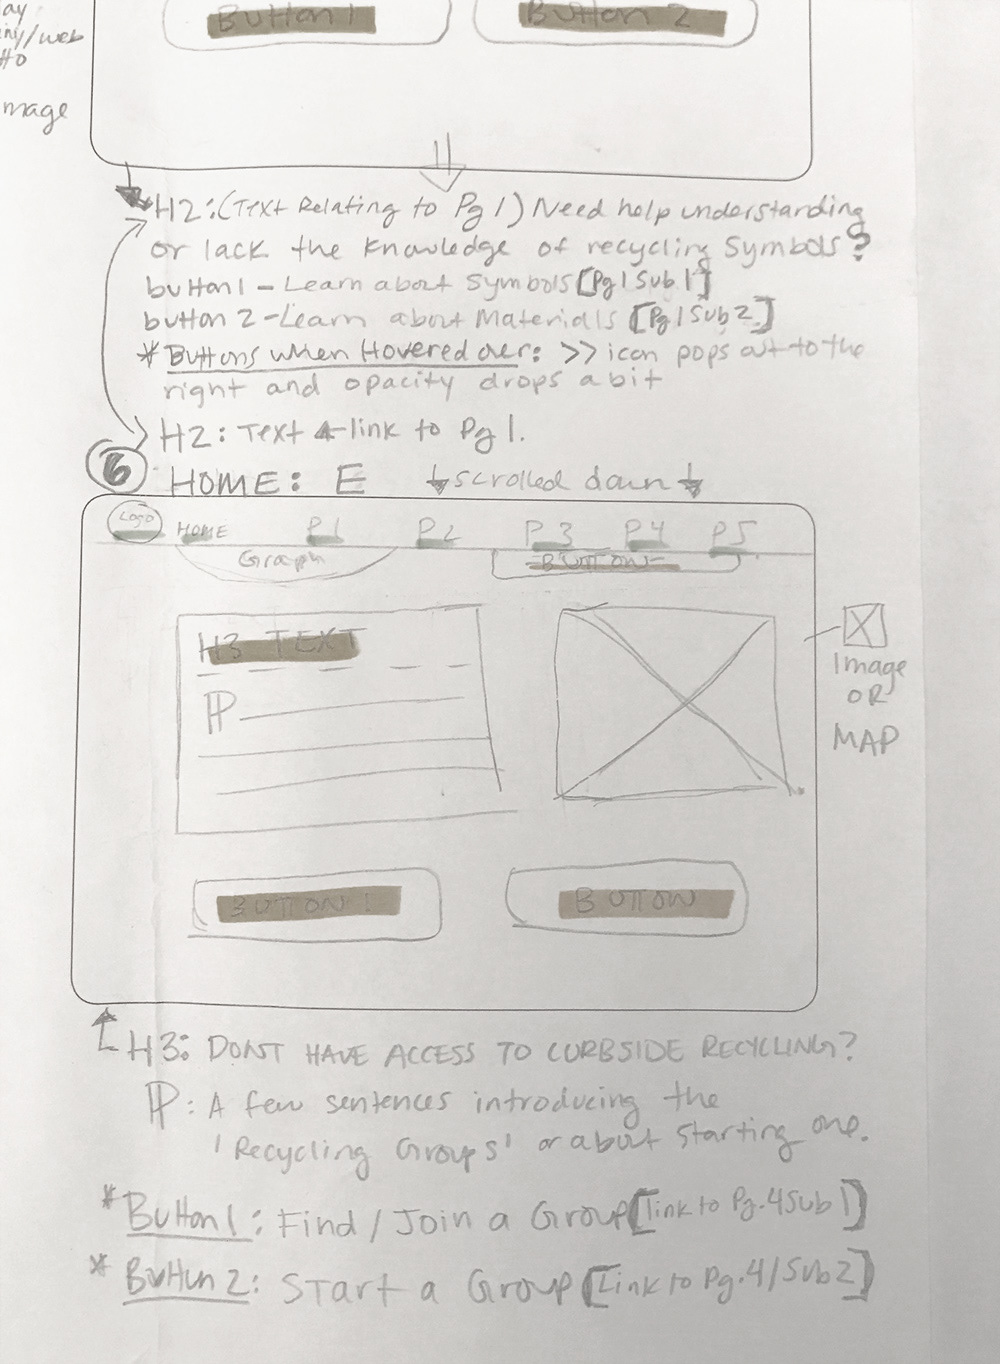 ay
/web
mage
Button 1
Button 2
H2: (Text Relating to Pg 1) Need help understanding
or lack the knowledge of recycling symbols?
button 1 - Learn about symbols [Pg 1 Sub 1]
button 2 - Learn about Materials [Pg 1 Sub 2]
* Buttons when Hovered over: >> icon pops out to the
right and opacity drops a bit
H2: Text link to Pg 1.
6 HOME: E ↓ scrolled down ↓
Logo HOME P1 P2 P3 P4 P5
Graph
BUTTON
H3 TEXT
P
Image
OR
MAP
BUTTON 1
BUTTON
H3: DONT HAVE ACCESS TO CURBSIDE RECYCLING?
P: A few sentences introducing the
'Recycling Groups' or about starting one.
* Button 1: Find / Join a Group [link to Pg. 4 Sub 1]
* Button 2: Start a Group [Link to Pg. 4 / Sub 2]